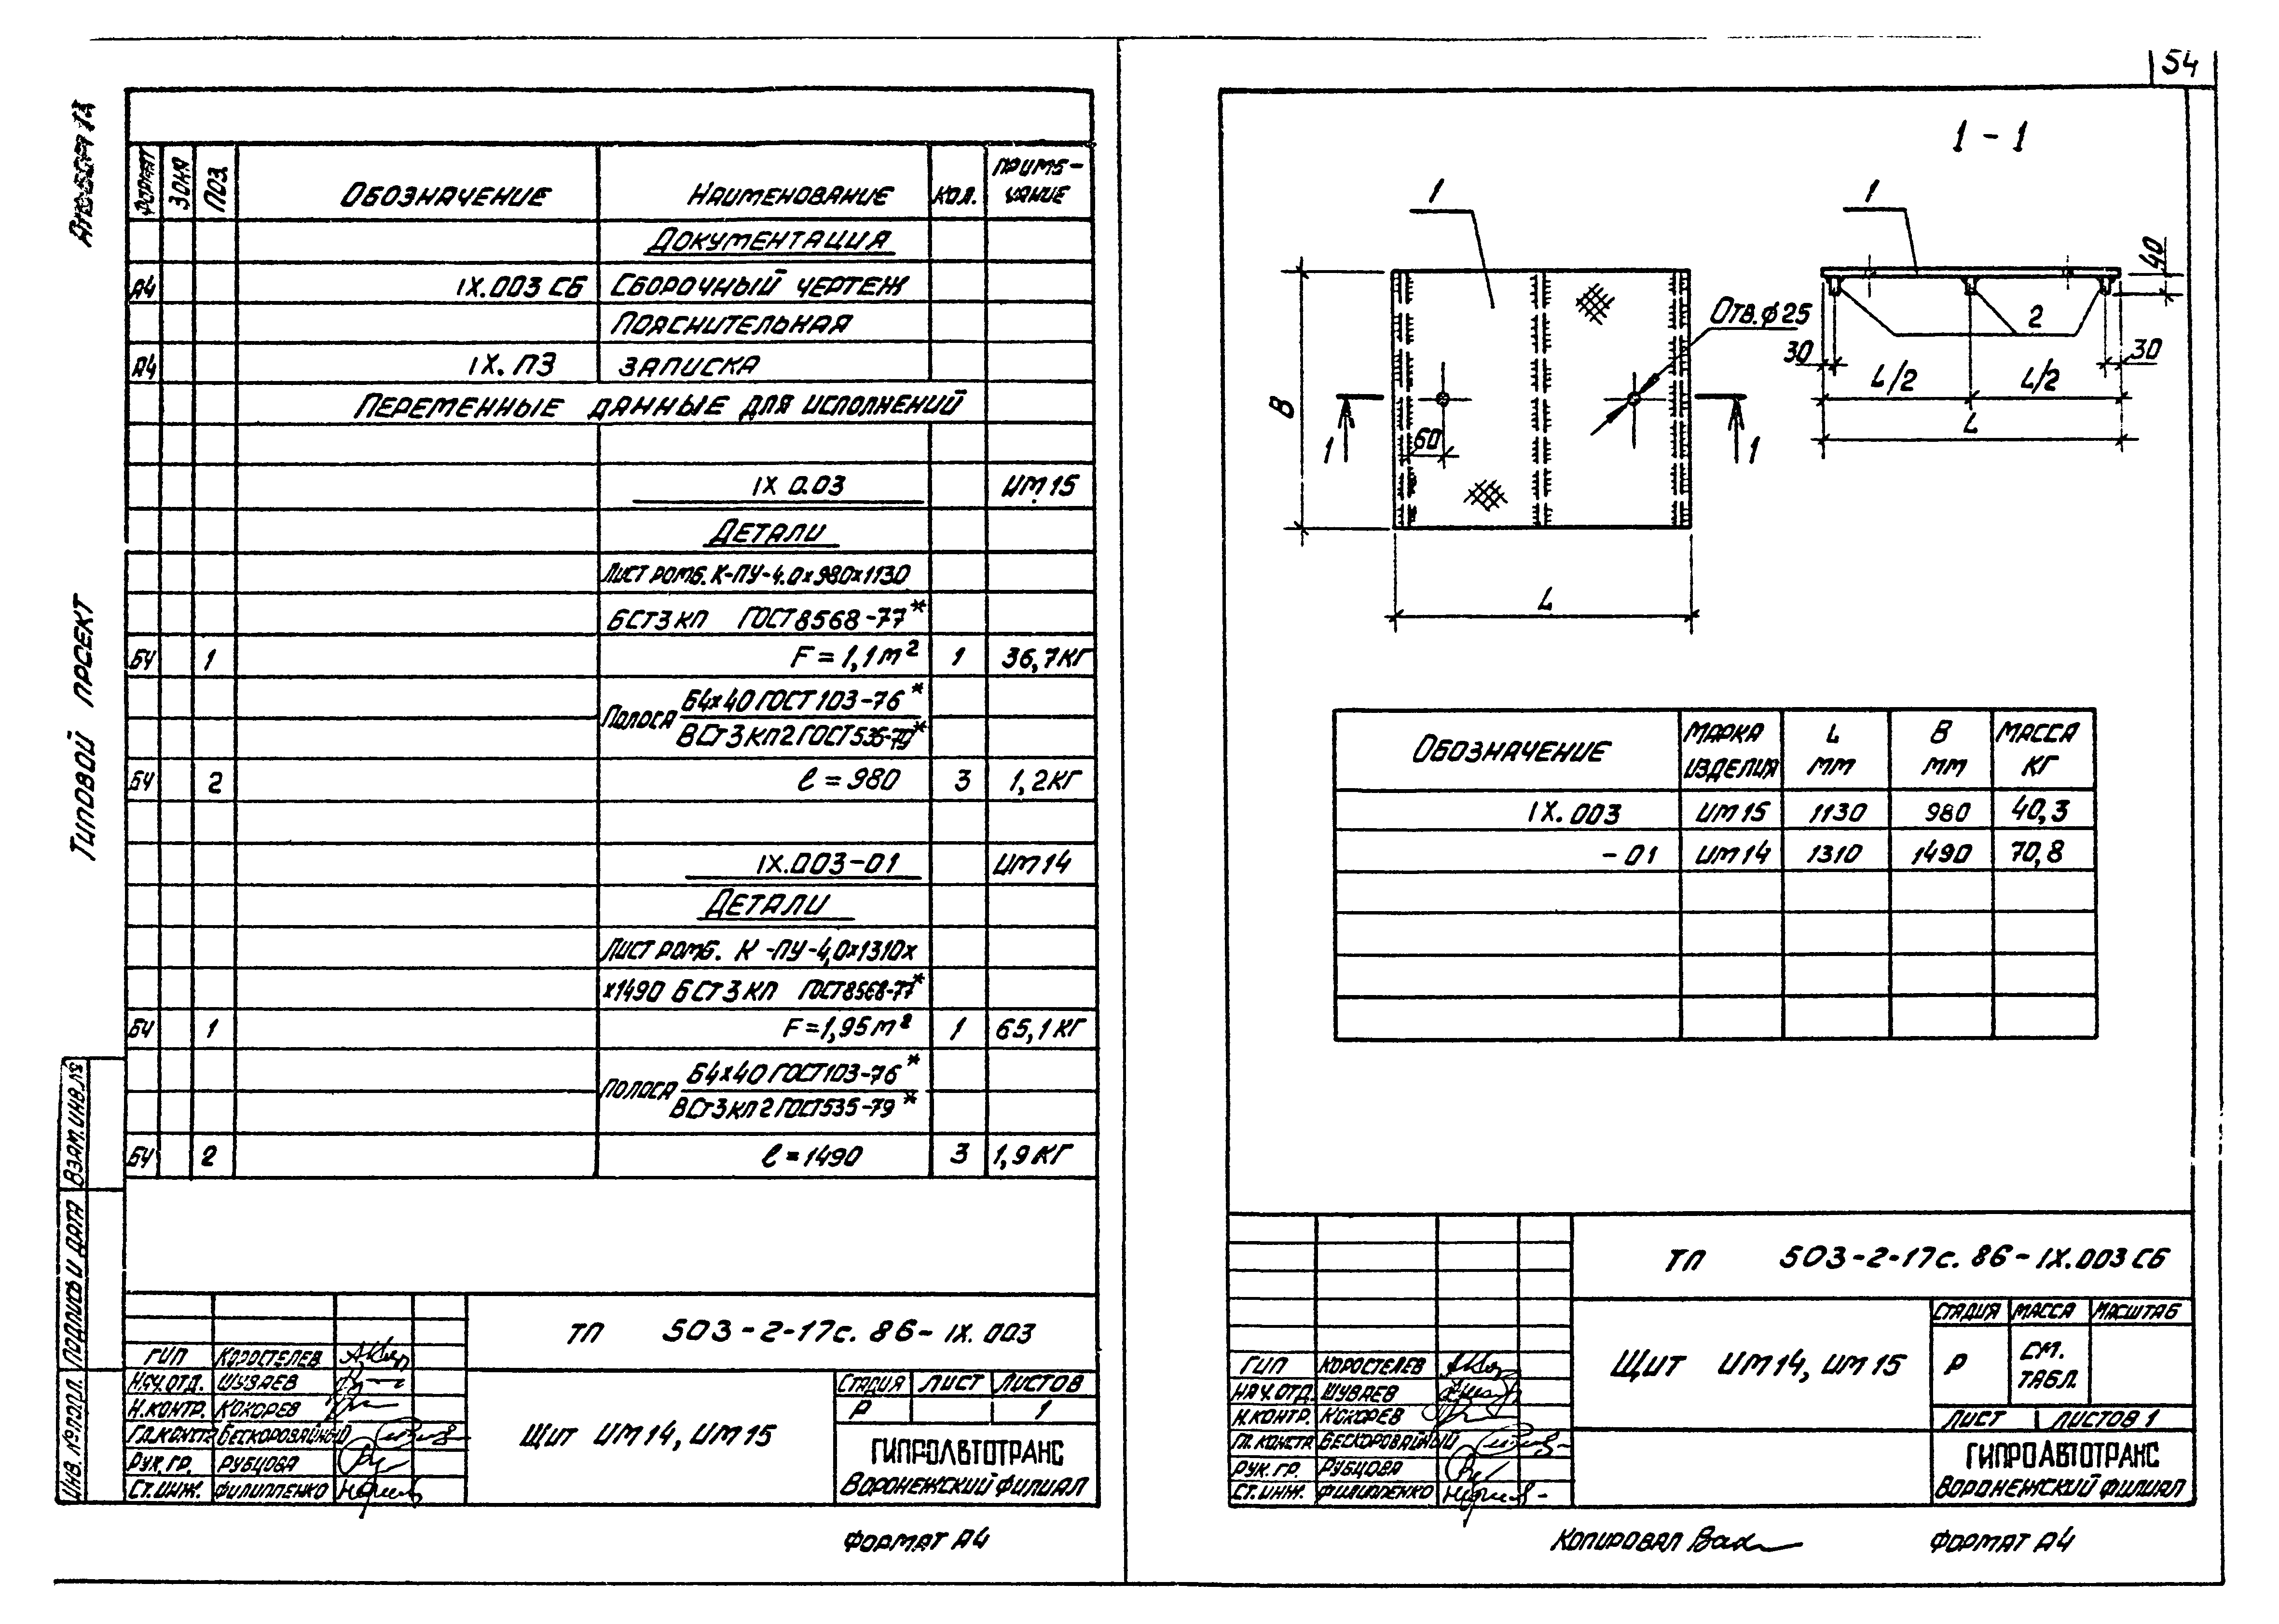 54
Альбом IX
Типовой проект
Взам.инв.№
Подпись и дата
Инв. № подл.
Формат Зона Поз. Обозначение Наименование Кол. Примечание
Документация
А4 IX.003 СБ Сборочный чертеж
Пояснительная
А4 IX. ПЗ записка
Переменные данные для исполнений
IX 0.03 ИМ 15
Детали
Лист ромб. К-ПУ-4.0х980х1130
БСт3кп ГОСТ 8568-77*
БЧ 1 F = 1,1 м² 1 36,7 кг
Полоса Б4х40 ГОСТ 103-76*
ВСт3кп2 ГОСТ 535-79*
БЧ 2 ℓ = 980 3 1,2 кг
IX.003-01 ИМ 14
Детали
Лист ромб. К-ПУ-4,0х1310х
х1490 БСт3кп ГОСТ 8568-77*
БЧ 1 F = 1,95 м² 1 65,1 кг
Полоса Б4х40 ГОСТ 103-76*
ВСт3кп2 ГОСТ 535-79*
БЧ 2 ℓ = 1490 3 1,9 кг
ТП 503-2-17с. 86- IX. 003
ГИП Коростелев
Нач.отд. Шуваев
Н.контр. Кокорев
Гл.констр. Бескоровайный
Рук.гр. Рубцова
Ст.инж. Филиппенко
Щит ИМ 14, ИМ 15
Стадия Лист Листов
Р 1
ГИПРОАВТОТРАНС
Воронежский филиал
Формат А4
1 - 1
1
1
Отв. ϕ 25
В
60
1
1
L
40
2
30
30
L/2
L/2
L
Обозначение Марка изделия L мм В мм Масса кг
IX.003 ИМ 15 1130 980 40,3
- 01 ИМ 14 1310 1490 70,8
ТП 503-2-17с. 86- IX.003 СБ
ГИП Коростелев
Нач.отд. Шуваев
Н.контр. Кокорев
Гл.констр. Бескоровайный
Рук.гр. Рубцова
Ст.инж. Филиппенко
Щит ИМ 14, ИМ 15
Стадия Масса Масштаб
Р См. табл.
Лист Листов 1
ГИПРОАВТОТРАНС
Воронежский филиал
Копировал
Формат А4